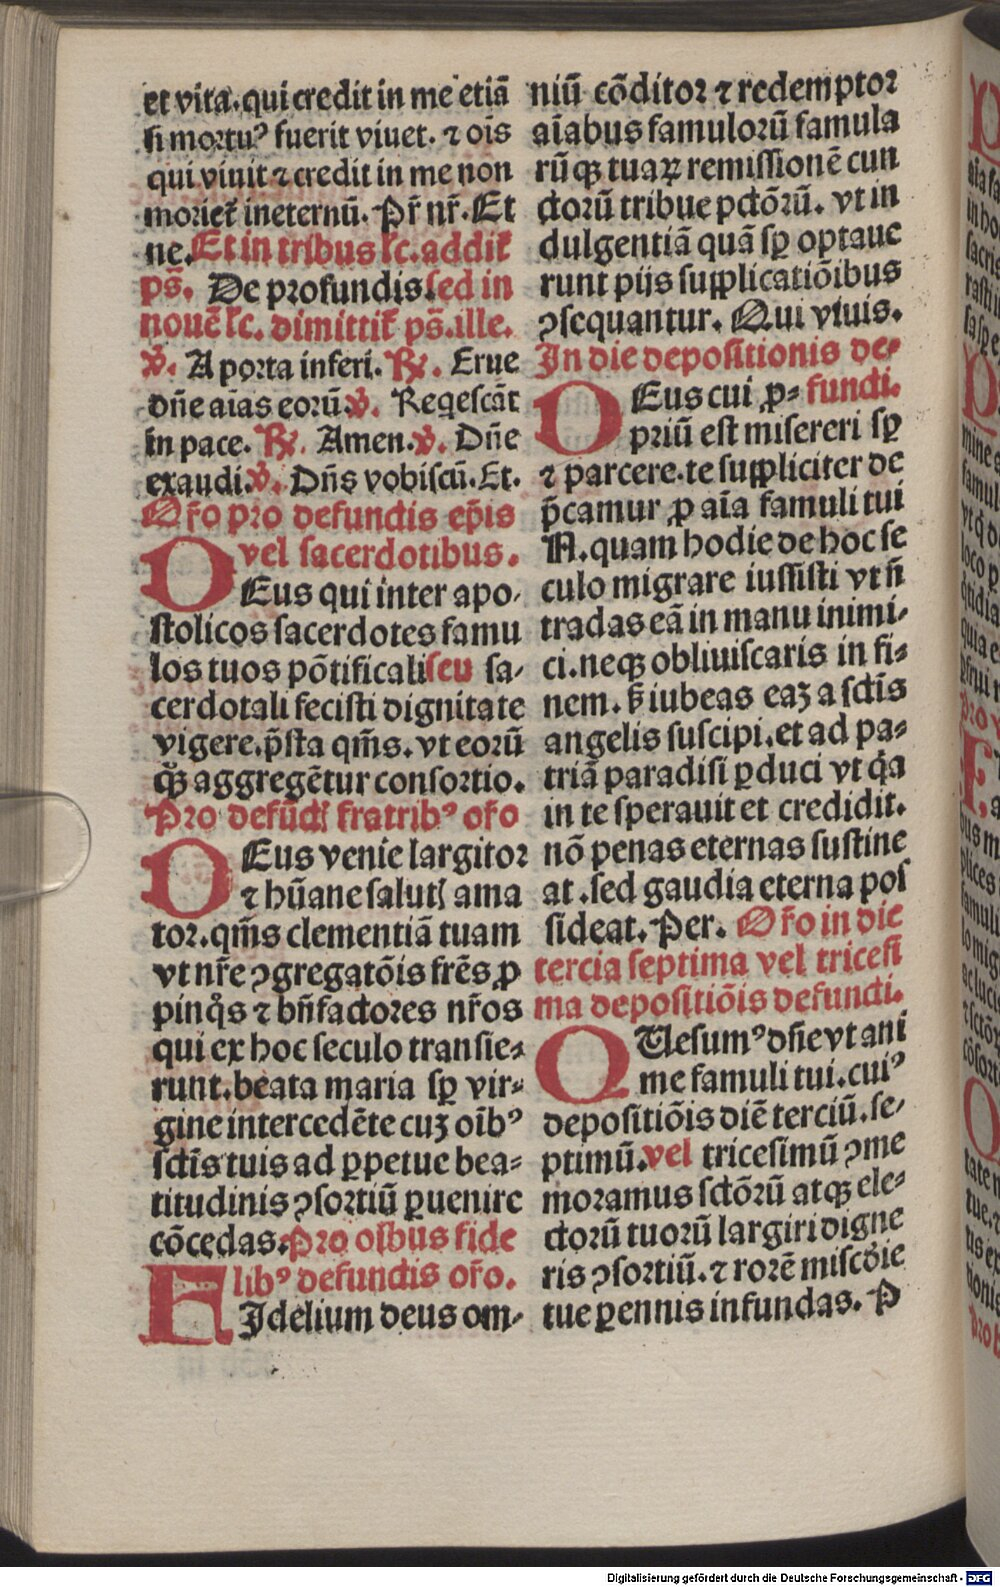 et vita. qui credit in me etiā
si mortuꝰ fuerit viuet. ⁊ oīs
qui viuit ⁊ credit in me non
moriet᷑ ineternū. Pr̄ nr̄. Et
ne. Et in tribus lc. addit᷑
ps̄. De profundis. sed in
nouē lc. dimittit᷑ ps̄. ille.
℣. A porta inferi. ℟. Erue
dn̄e aīas eorū ℣. Reqescāt
in pace. ℟. Amen. ℣. Dn̄e
exaudi ℣. Dn̄s vobiscū. Et.
Or̄o pro defunctis ep̄is
vel sacerdotibus.
DEus qui inter apo-
stolicos sacerdotes famu
los tuos pōtificali seu sa-
cerdotali fecisti dignitate
vigere. p̄sta qm̄s. vt eorū
qꝫ aggregētur consortio.
Pro defūctꝭ fratribꝰ or̄o
DEus venie largitor
⁊ hūane salutꝭ ama
tor. qm̄s clementiā tuam
vt nr̄e ꝯgregatōis frēs ꝓ
pinqͦs ⁊ bn̄factores nr̄os
qui ex hoc seculo transie-
runt. beata maria sꝑ vir-
gine intercedēte cuʒ oībꝰ
sctīs tuis ad ꝑpetue bea-
titudinis ꝯsortiū ꝑuenire
cōcedas. Pro oībus fide
libꝰ defunctis or̄o.
FIdelium deus om-
niū cōditor ⁊ redemptor
aīabus famulorū famula
rū qꝫ tuaꝝ remissionē cun
ctorū tribue pctōrū. vt in
dulgentiā quā sꝑ optaue
runt pijs supplicatiōibus
ꝯsequantur. Qui viuis.
In die depositionis de-
functi.
DEus cui ꝓ-
priū est misereri sꝑ
⁊ parcere. te suppliciter de
p̄camur ꝓ aīa famuli tui
N. quam hodie de hoc se
culo migrare iussisti vt nō
tradas eā in manu inimi-
ci. neqꝫ obliuiscaris in fi-
nem. sꝫ iubeas eaʒ a sctīs
angelis suscipi. et ad pa-
triā paradisi ꝑduci vt qͣa
in te sperauit et credidit.
nō penas eternas sustine
at. sed gaudia eterna pos
sideat. Per. Or̄o in die
tercia septima vel tricesi
ma depositiōis defuncti.
QUesumꝰ dn̄e vt ani
me famuli tui. cuiꝰ
depositiōis diē terciū. se-
ptimū. vel tricesimū ꝯme
moramus sctōrū atqꝫ ele-
ctorū tuorū largiri digne
ris ꝯsortiū. ⁊ rorē miscd̄ie
tue ꝑennis infundas. P
Digitalisierung gefördert durch die Deutsche Forschungsgemeinschaft - DFG